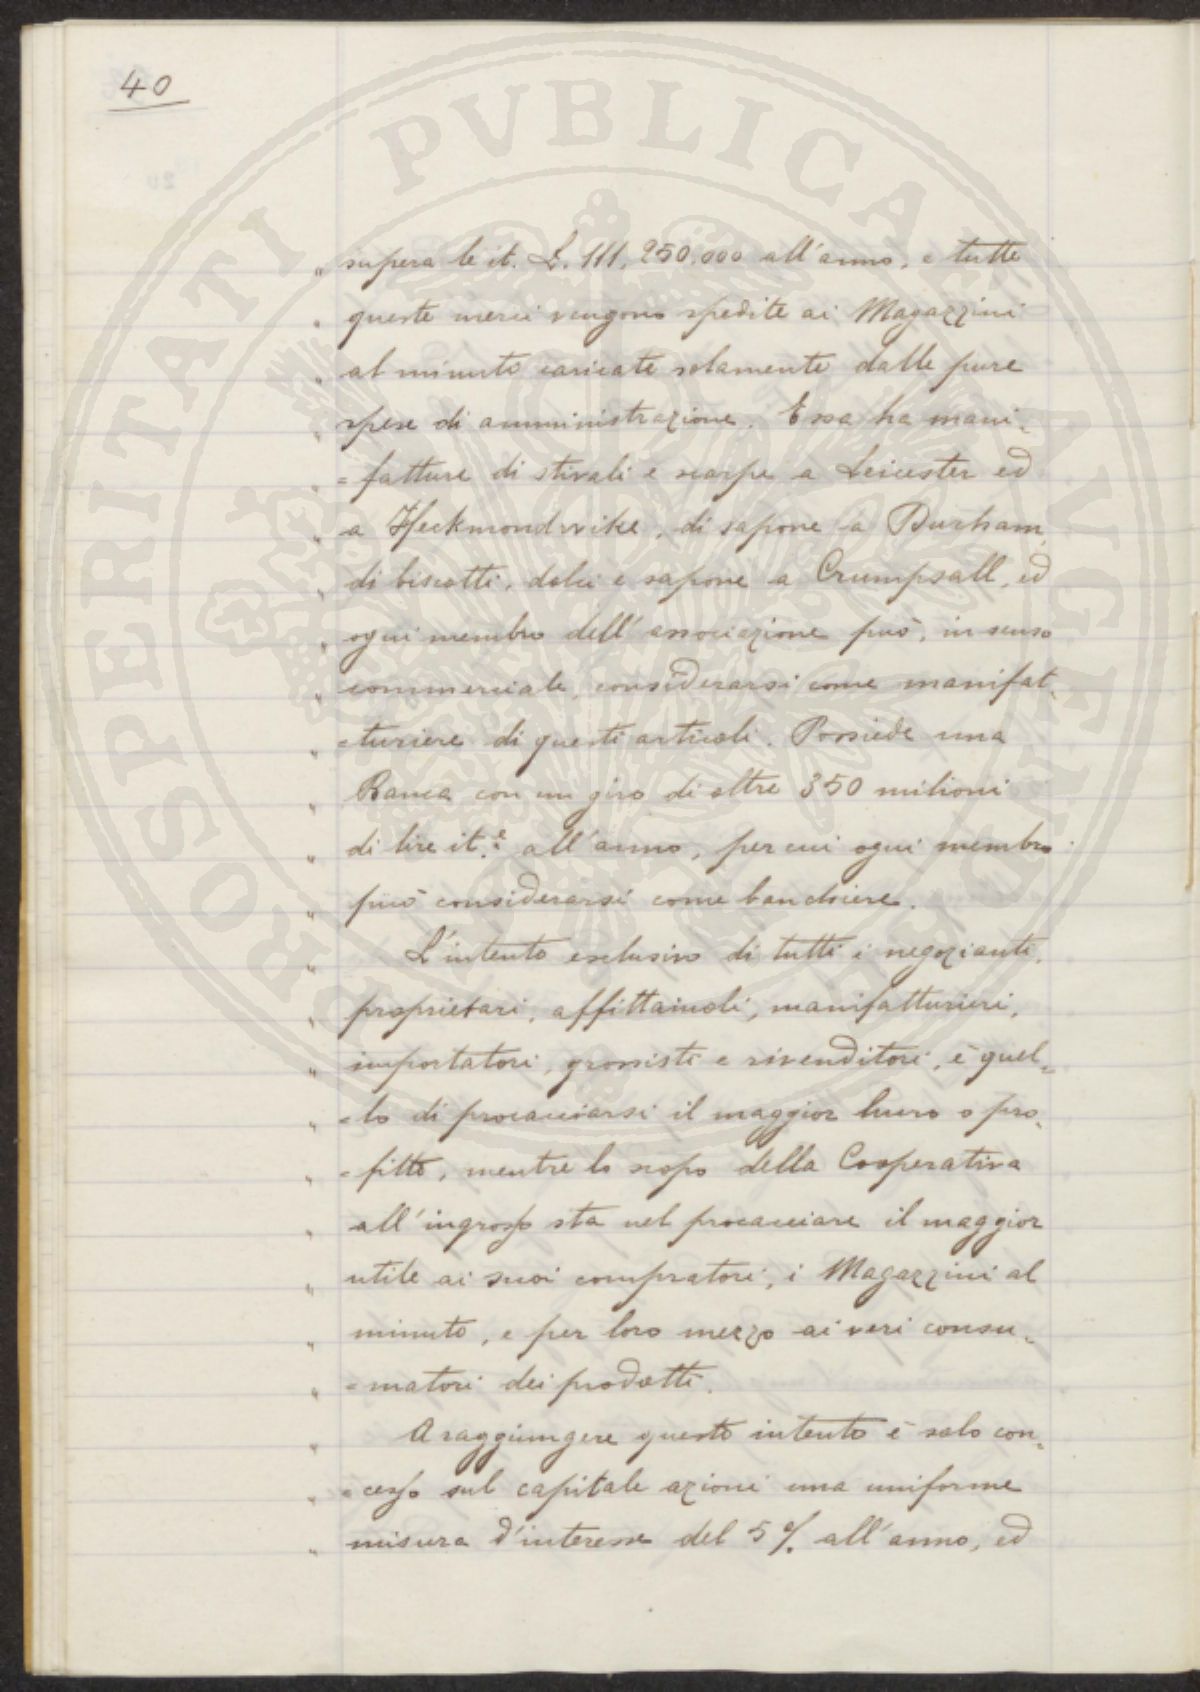 40
PROSPERITATI PVBLICAE AVGENDAE
„ supera le it. L. 111,250.000 all'anno, e tutte
„ queste merci vengono spedite ai Magazzini
„ al minuto caricate solamente dalle pure
„ spese di amministrazione. Essa ha mani-
„ =fatture di stivali e scarpe a Leicester ed
„ a Heckmondwike, di sapone a Durham,
„ di biscotti, dolci e sapone a Crumpsall, ed
„ ogni membro dell'associazione può, in senso
„ commerciale, considerarsi come manifat-
„ =turiere di questi articoli. Possiede una
„ Banca con un giro di oltre 350 milioni
„ di lire it.e all'anno, per cui ogni membro
„ può considerarsi come banchiere.
„ L'intento esclusivo di tutti i negozianti,
„ proprietari, affittaiuoli, manifatturieri,
„ importatori, grossisti e rivenditori, è quel-
„ =lo di procacciarsi il maggior lucro o pro-
„ =fitto, mentre lo scopo della Cooperativa
„ all'ingrosso sta nel procacciare il maggior
„ utile ai suoi compratori, i Magazzini al
„ minuto, e per loro mezzo ai veri consu-
„ =matori dei prodotti.
„ A raggiungere questo intento è solo con-
„ =cesso sul capitale azioni una uniforme
„ misura d'interesse del 5% all'anno, ed